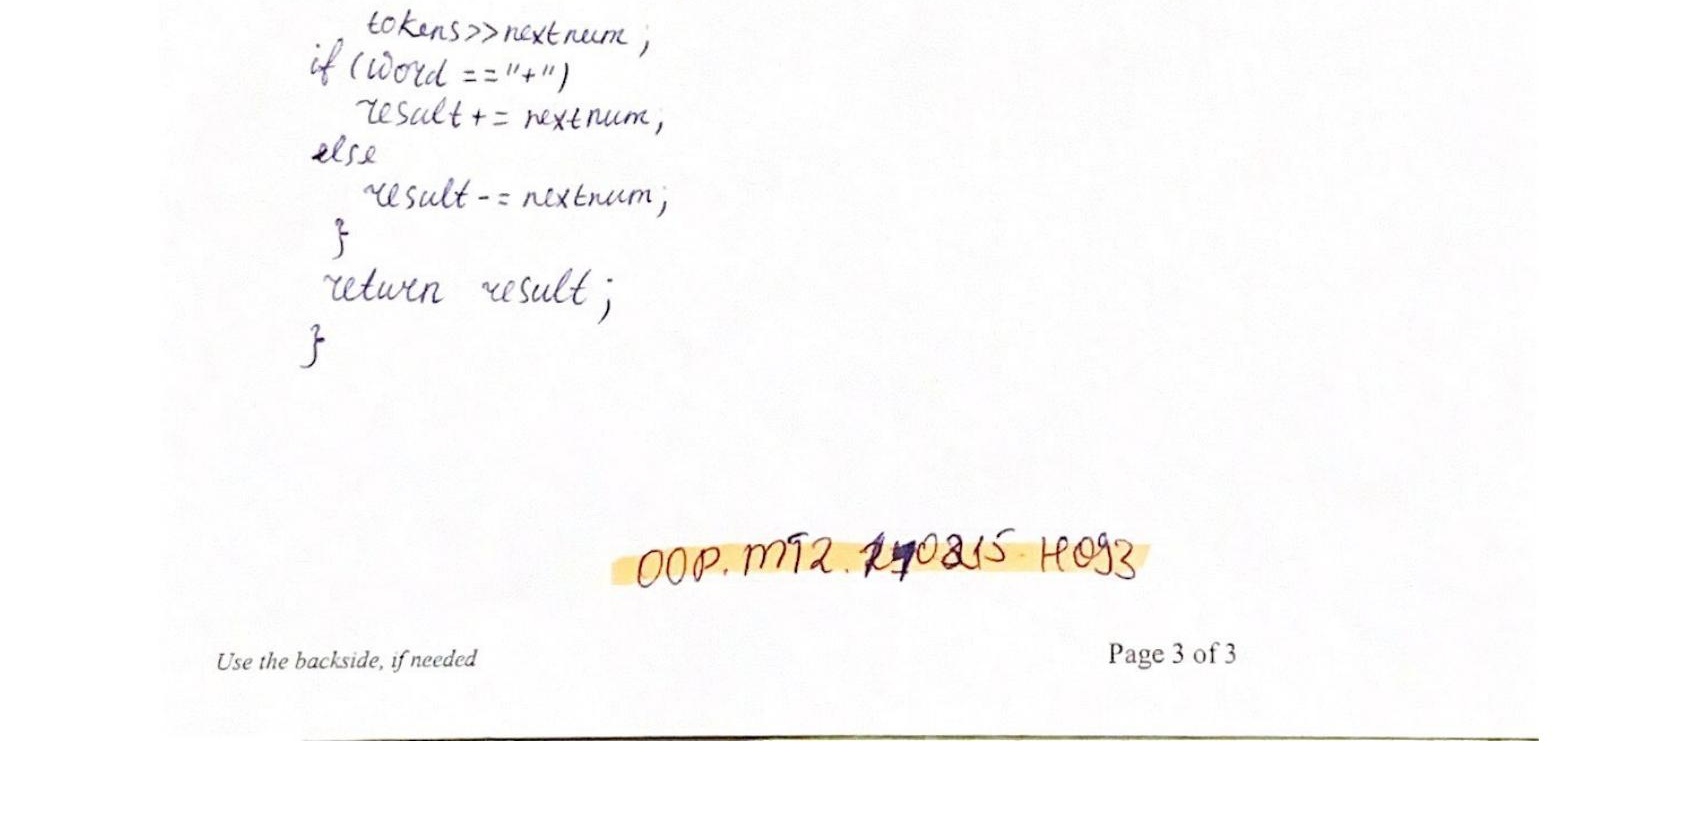 tokens>>nextnum;
if (word =="+")
result += nextnum;
else
result -= nextnum;
}
return result;
}
OOP. MT2. 0215. H093
Use the backside, if needed
Page 3 of 3